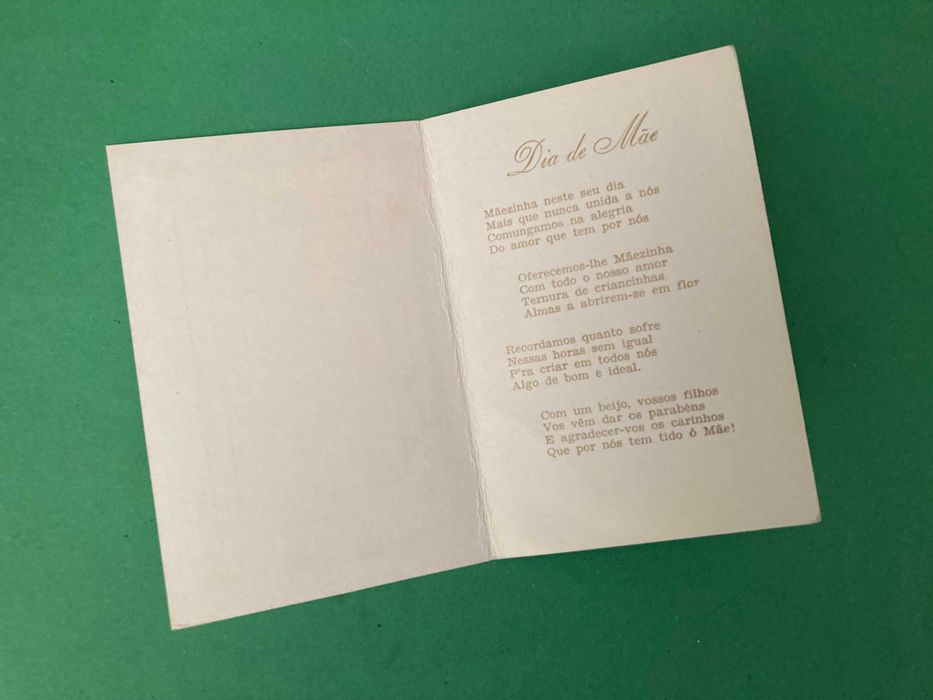 Dia de Mãe
Mãezinha neste seu dia
Mais que nunca unida a nós
Comungamos na alegria
Do amor que tem por nós
Oferecemos-lhe Mãezinha
Com todo o nosso amor
Ternura de criancinhas
Almas a abrirem-se em flor
Recordamos quanto sofre
Nessas horas sem igual
P'ra criar em todos nós
Algo de bom e ideal.
Com um beijo, vossos filhos
Vos vêm dar os parabéns
E agradecer-vos os carinhos
Que por nós tem tido ó Mãe!